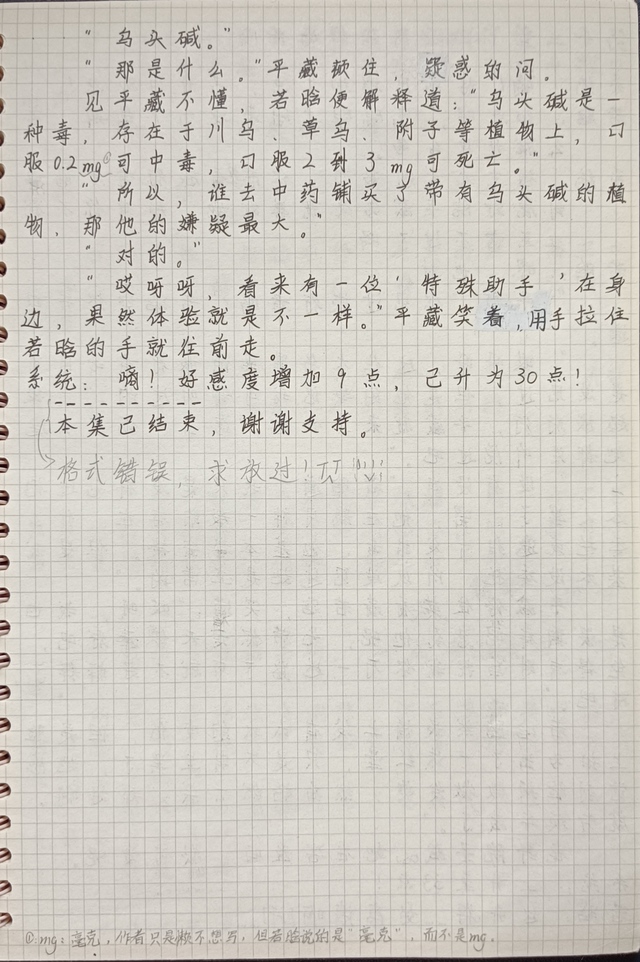 “乌头碱。”
“那是什么。”平藏顿住，疑惑的问。
见平藏不懂，若晗便解释道：“乌头碱是一
种毒，存在于川乌、草乌、附子等植物上，口
服0.2mg①可中毒，口服2到3mg可死亡。”
“所以，谁去中药铺买了带有乌头碱的植
物，那他的嫌疑最大。”
“对的。”
“哎呀呀，看来有一位‘特殊助手’在身
边，果然体验就是不一样。”平藏笑着，用手拉住
若晗的手就往前走。
系统：嘀！好感度增加9点，已升为30点！
本集已结束，谢谢支持。
格式错误，求放过！TT
①:mg：毫克，作者只是懒不想写，但若晗说的是“毫克”，而不是mg。